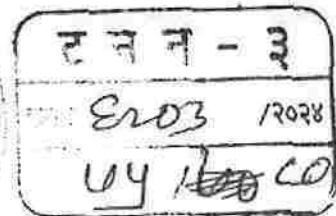 ट न न - ३
६२०३ /२०२४
५५ / ८०